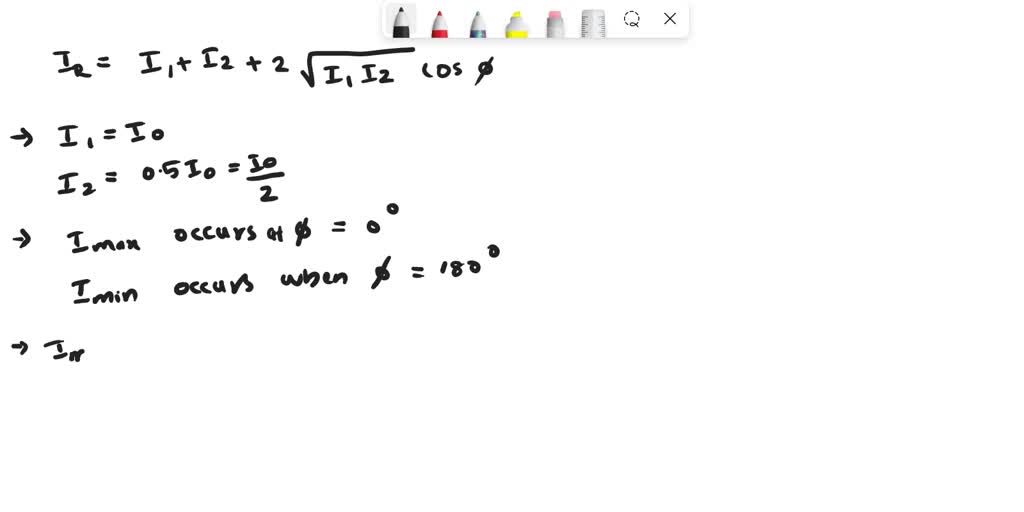 I_R = I_1 + I_2 + 2 √(I_1 I_2) cos ϕ
→ I_1 = I_0
I_2 = 0.5 I_0 = I_0/2
→ I_max occurs at ϕ = 0°
I_min occurs when ϕ = 180°
→ I_m